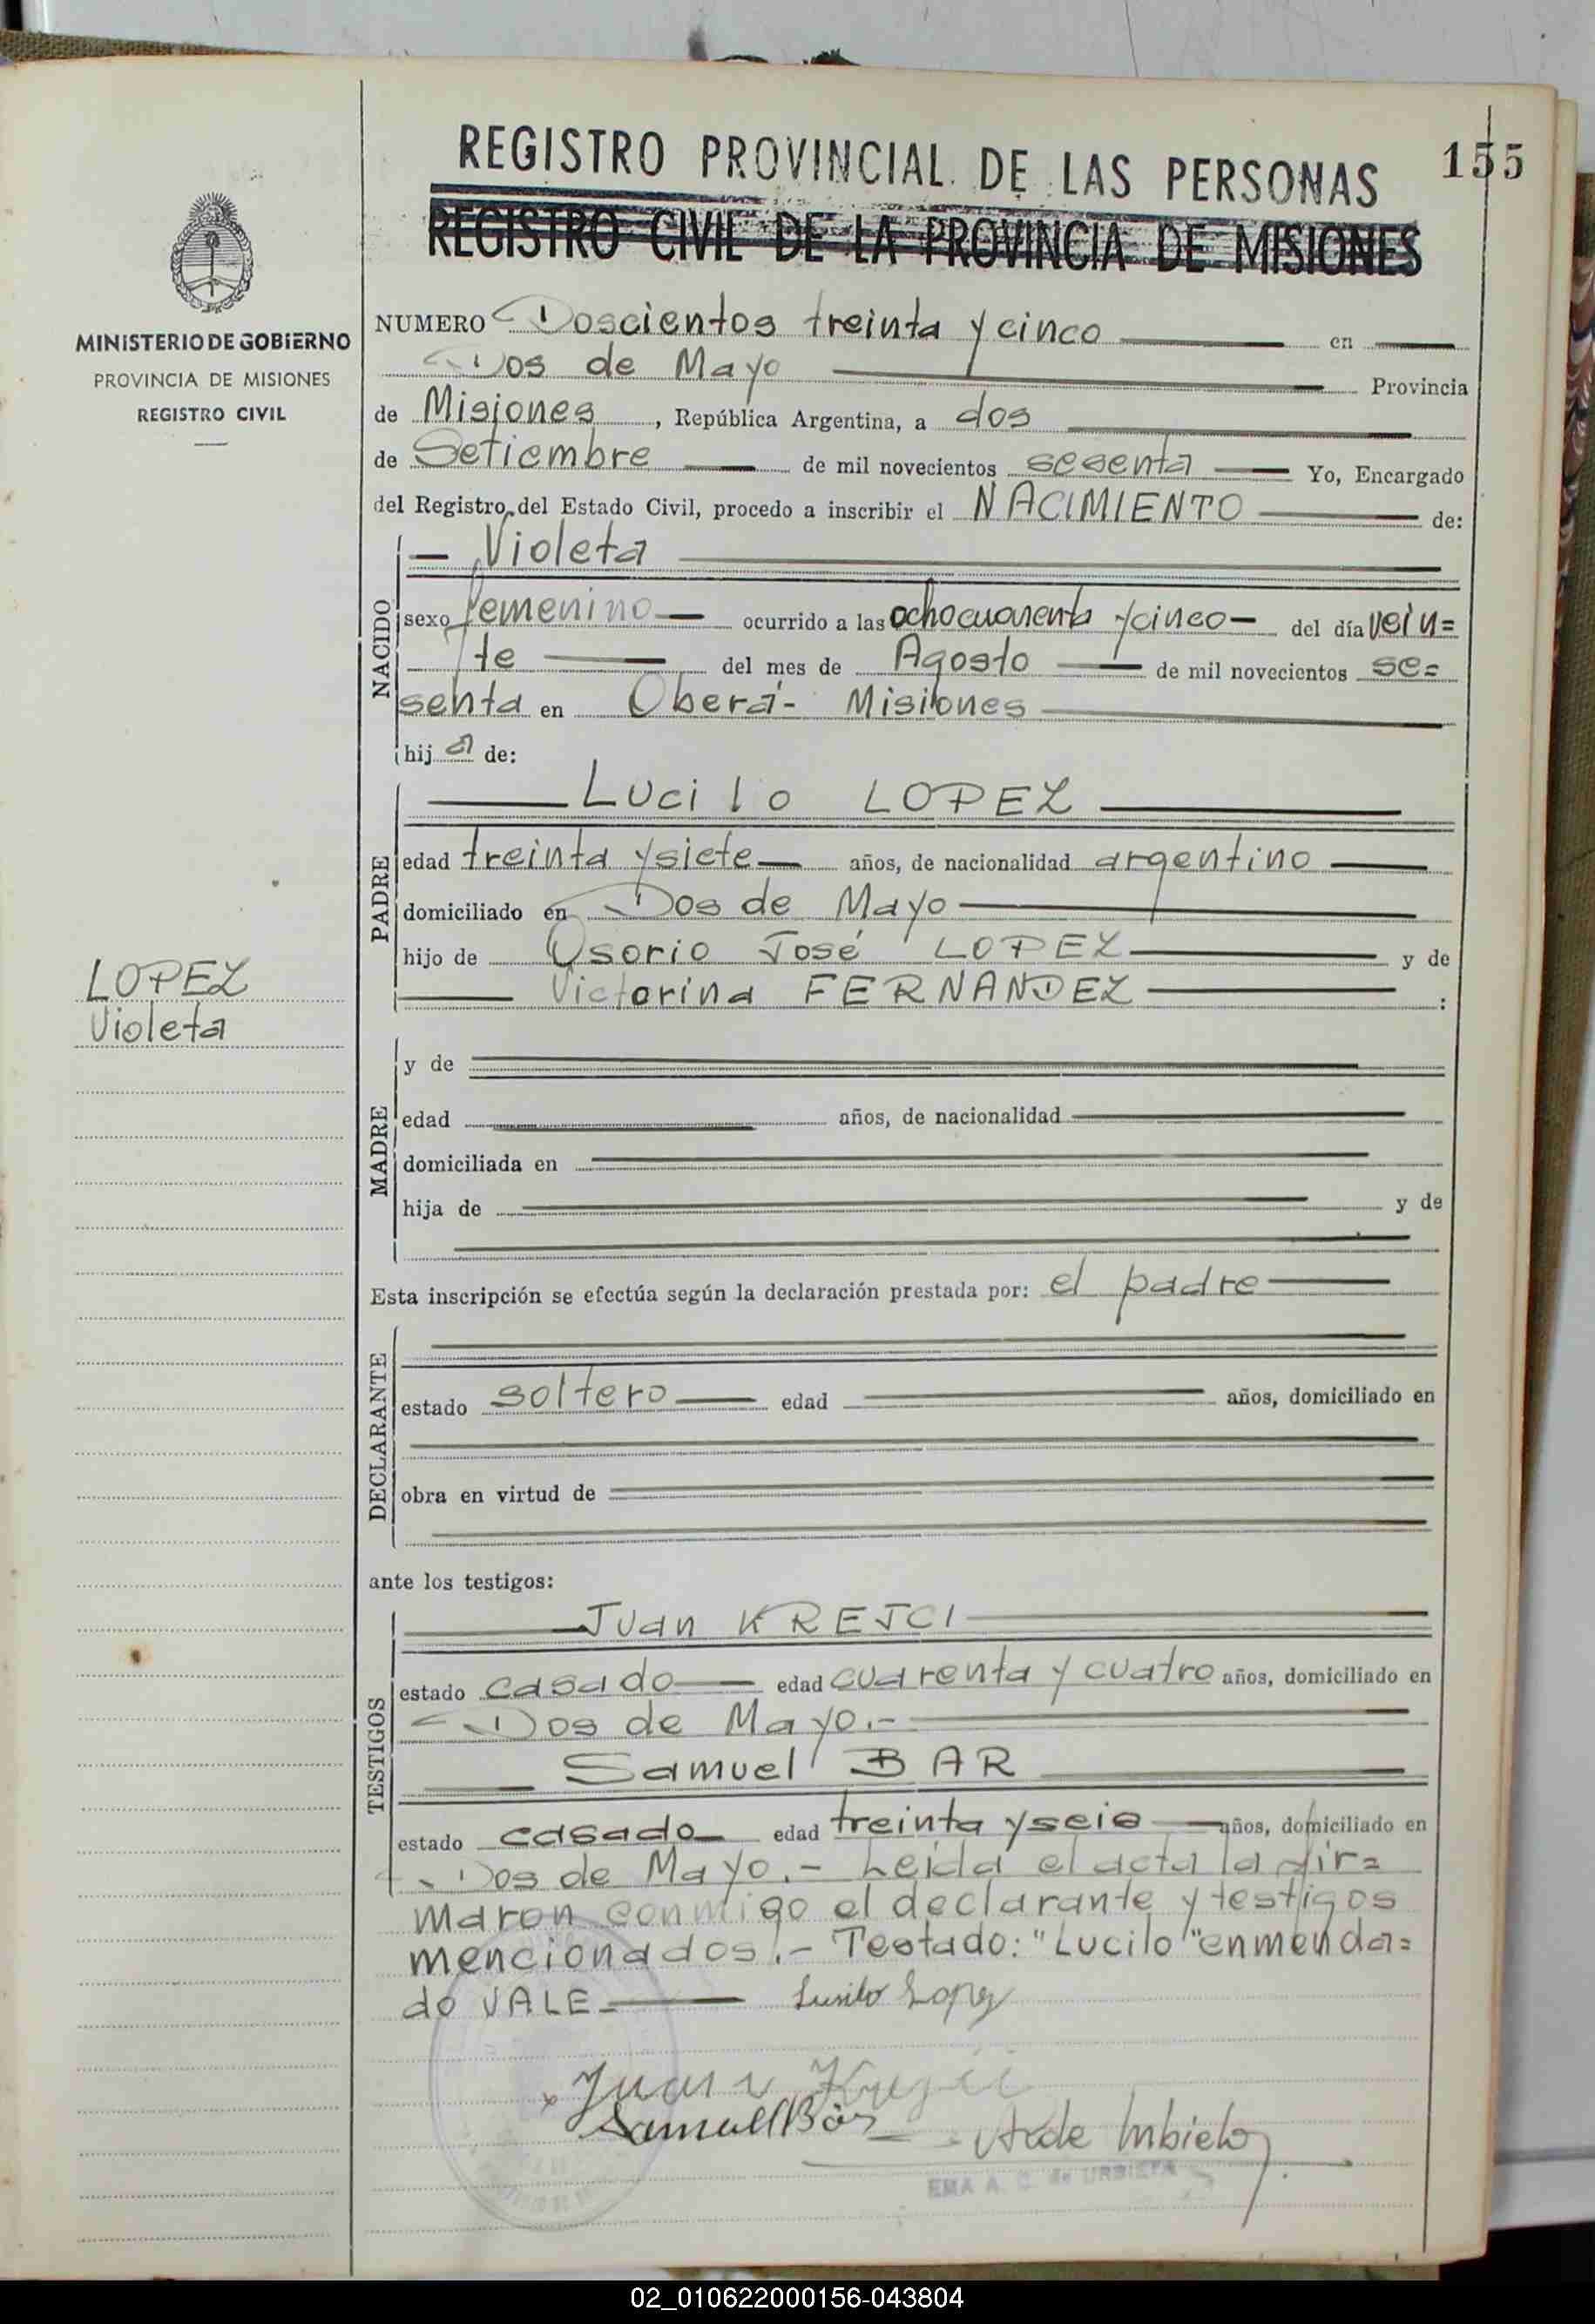 155
REGISTRO PROVINCIAL DE LAS PERSONAS
REGISTRO CIVIL DE LA PROVINCIA DE MISIONES
MINISTERIO DE GOBIERNO
PROVINCIA DE MISIONES
REGISTRO CIVIL
LOPEZ
Violeta
NUMERO Doscientos treinta y cinco en
Dos de Mayo Provincia
de Misiones, República Argentina, a dos
de Setiembre de mil novecientos sesenta Yo, Encargado
del Registro del Estado Civil, procedo a inscribir el NACIMIENTO de:
NACIDO
Violeta
sexo femenino ocurrido a las ocho cuarenta y cinco del día vein=
te del mes de Agosto de mil novecientos se=
senta en Oberá- Misiones
hij a de:
PADRE
Lucilo LOPEZ
edad treinta y siete años, de nacionalidad argentino
domiciliado en Dos de Mayo
hijo de Osorio José LOPEZ y de
Victorina FERNANDEZ :
MADRE
y de
edad años, de nacionalidad
domiciliada en
hija de y de
Esta inscripción se efectúa según la declaración prestada por: el padre
DECLARANTE
estado soltero edad años, domiciliado en
obra en virtud de
ante los testigos:
TESTIGOS
Juan KREJCI
estado casado edad cuarenta y cuatro años, domiciliado en
Dos de Mayo.-
Samuel BAR
estado casado edad treinta y seis años, domiciliado en
Dos de Mayo.- Leída el acta la fir=
maron conmigo el declarante y testigos
mencionados.- Testado: "Lucilo" enmenda=
do VALE.- Lusilo Lopez
Juan Krejci
Samuel Bar
EMA A. C. de URBIETA
02_010622000156-043804